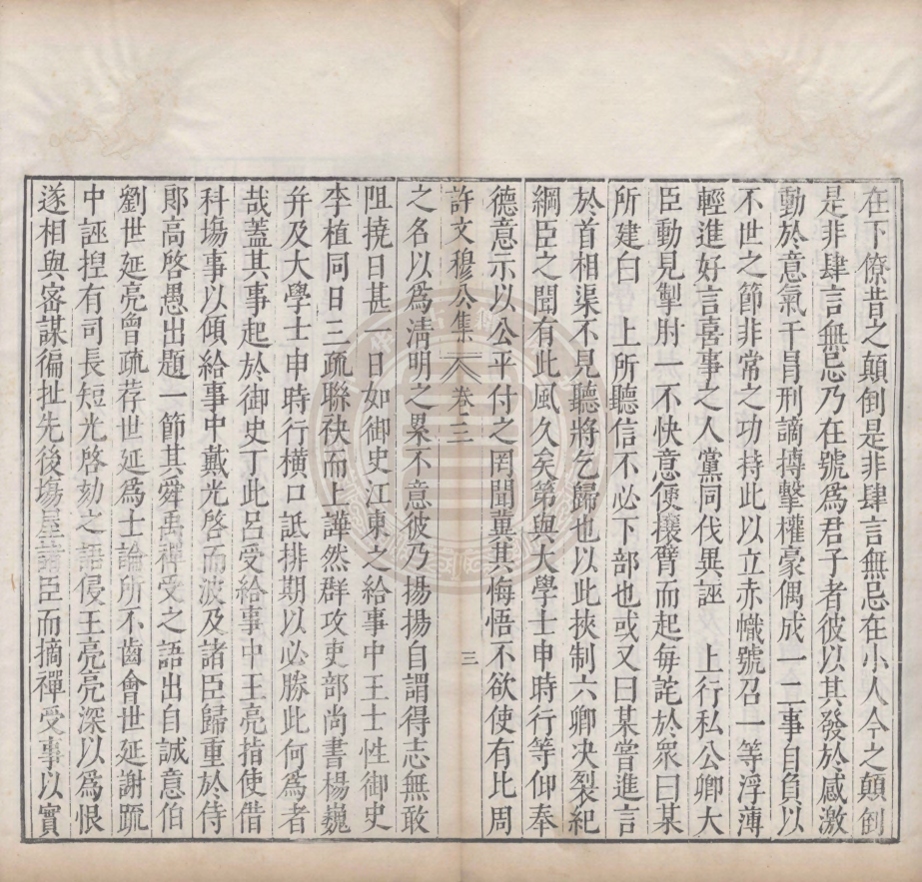 在下僚昔之顛倒是非肆言無忌在小人今之顛倒
是非肆言無忌乃在號爲君子者彼以其發於感激
動於意氣干冐刑謫摶擊權豪偶成一二事自負以
不世之節非常之功持此以立赤幟號召一等浮薄
輕進好言喜事之人黨同伐異誣　上行私公卿大
臣動見掣肘一不快意便攘臂而起每詫於衆曰某
所建白　上所聽信不必下部也或又曰某嘗進言
於首相渠不見聽將乞歸也以此挾制六卿决裂紀
綱臣之聞有此風久矣第與大學士申時行等仰奉
德意示以公平付之罔聞冀其悔悟不欲使有比周
許文穆公集　卷二　三
之名以爲淸明之累不意彼乃揚揚自謂得志無敢
阻撓日甚一日如御史江東之給事中王士性御史
李植同日三疏聯袂而上譁然群攻吏部尚書楊巍
幷及大學士申時行橫口詆排期以必勝此何爲者
哉蓋其事起於御史丁此呂受給事中王亮指使借
科塲事以傾給事中戴光啓而波及諸臣歸重於侍
郞高啓愚出題一節其舜禹禪受之語出自誠意伯
劉世延亮曾疏荐世延爲士論所不齒會世延謝䟽
中誣揑有司長短光啓劾之語侵王亮亮深以爲恨
遂相與密謀徧扯先後塲屋諸臣而摘禪受事以實